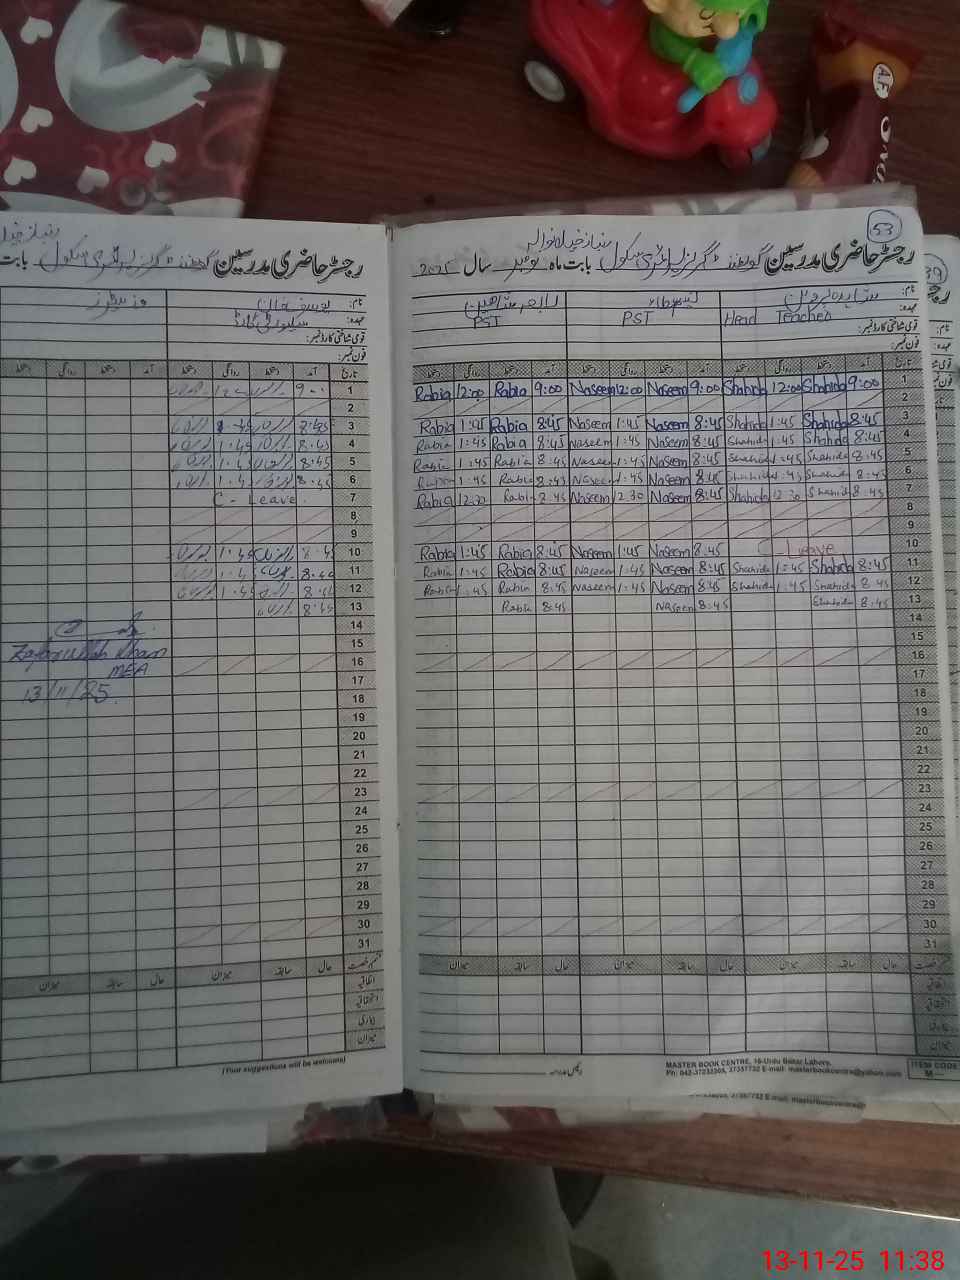 53
رجسٹر حاضری مدرسین گورنمنٹ گرلز پرائمری سکول بابت ماہ نومبر سال 2025
نام: شاہدہ پروین
عہدہ: Head Teacher PST PST
قومی شناختی کارڈ نمبر:
فون نمبر:
تاریخ آمد دستخط روانگی دستخط آمد دستخط روانگی دستخط آمد دستخط روانگی دستخط
Rabia 12:00 Rabia 9:00 Naseem 12:00 Naseem 9:00 Shahida 12:00 Shahida 9:00 1
2
Rabia 1:45 Rabia 8:45 Naseem 1:45 Naseem 8:45 Shahida 1:45 Shahida 8:45 3
Rabia 1:45 Rabia 8:45 Naseem 1:45 Naseem 8:45 Shahida 1:45 Shahida 8:45 4
Rabia 1:45 Rabia 8:45 Naseem 1:45 Naseem 8:45 Shahida 1:45 Shahida 8:45 5
Rabia 1:45 Rabia 8:45 Naseem 1:45 Naseem 8:45 Shahida 1:45 Shahida 8:45 6
Rabia 12:30 Rabia 8:45 Naseem 12:30 Naseem 8:45 Shahida 12:30 Shahida 8:45 7
8
9
Rabia 1:45 Rabia 8:45 Naseem 1:45 Naseem 8:45 C-Leave 10
Rabia 1:45 Rabia 8:45 Naseem 1:45 Naseem 8:45 Shahida 1:45 Shahida 8:45 11
Rabia 1:45 Rabia 8:45 Naseem 1:45 Naseem 8:45 Shahida 1:45 Shahida 8:45 12
Rabia 8:45 Naseem 8:45 Shahida 8:45 13
14
15
16
17
18
19
20
21
22
23
24
25
26
27
28
29
30
31
قسم رخصت حال سابقہ میزان حال سابقہ میزان حال سابقہ میزان
اتفاقیہ
استحقاقیہ
بیماری
میزان
MASTER BOOK CENTRE, 16-Urdu Bazar Lahore.
Ph: 042-37232205, 37357732 E-mail: masterbookcentre@yahoo.com
ITEM CODE
M
رجسٹر حاضری مدرسین گورنمنٹ گرلز پرائمری سکول بابت
نام: یوسف خان وزیٹرز
عہدہ: سیکورٹی گارڈ
قومی شناختی کارڈ نمبر:
فون نمبر:
تاریخ آمد دستخط روانگی دستخط آمد دستخط روانگی دستخط
9:00 1
2
1:45 8:45 3
1:45 8:45 4
1:45 8:45 5
1:45 8:45 6
C-Leave 7
8
9
1:45 8:45 10
1:45 8:45 11
1:45 8:45 12
8:45 13
14
Zafarullah Khan 15
MEA 16
13/11/25 17
18
19
20
21
22
23
24
25
26
27
28
29
30
31
قسم رخصت حال سابقہ میزان حال سابقہ میزان
اتفاقیہ
استحقاقیہ
بیماری
میزان
(Your suggestions will be welcome)
13-11-25 11:38